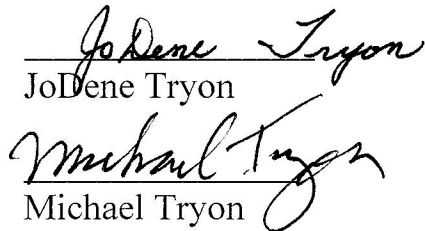 JoDene Tryon
JoDene Tryon
Michael Tryon
Michael Tryon